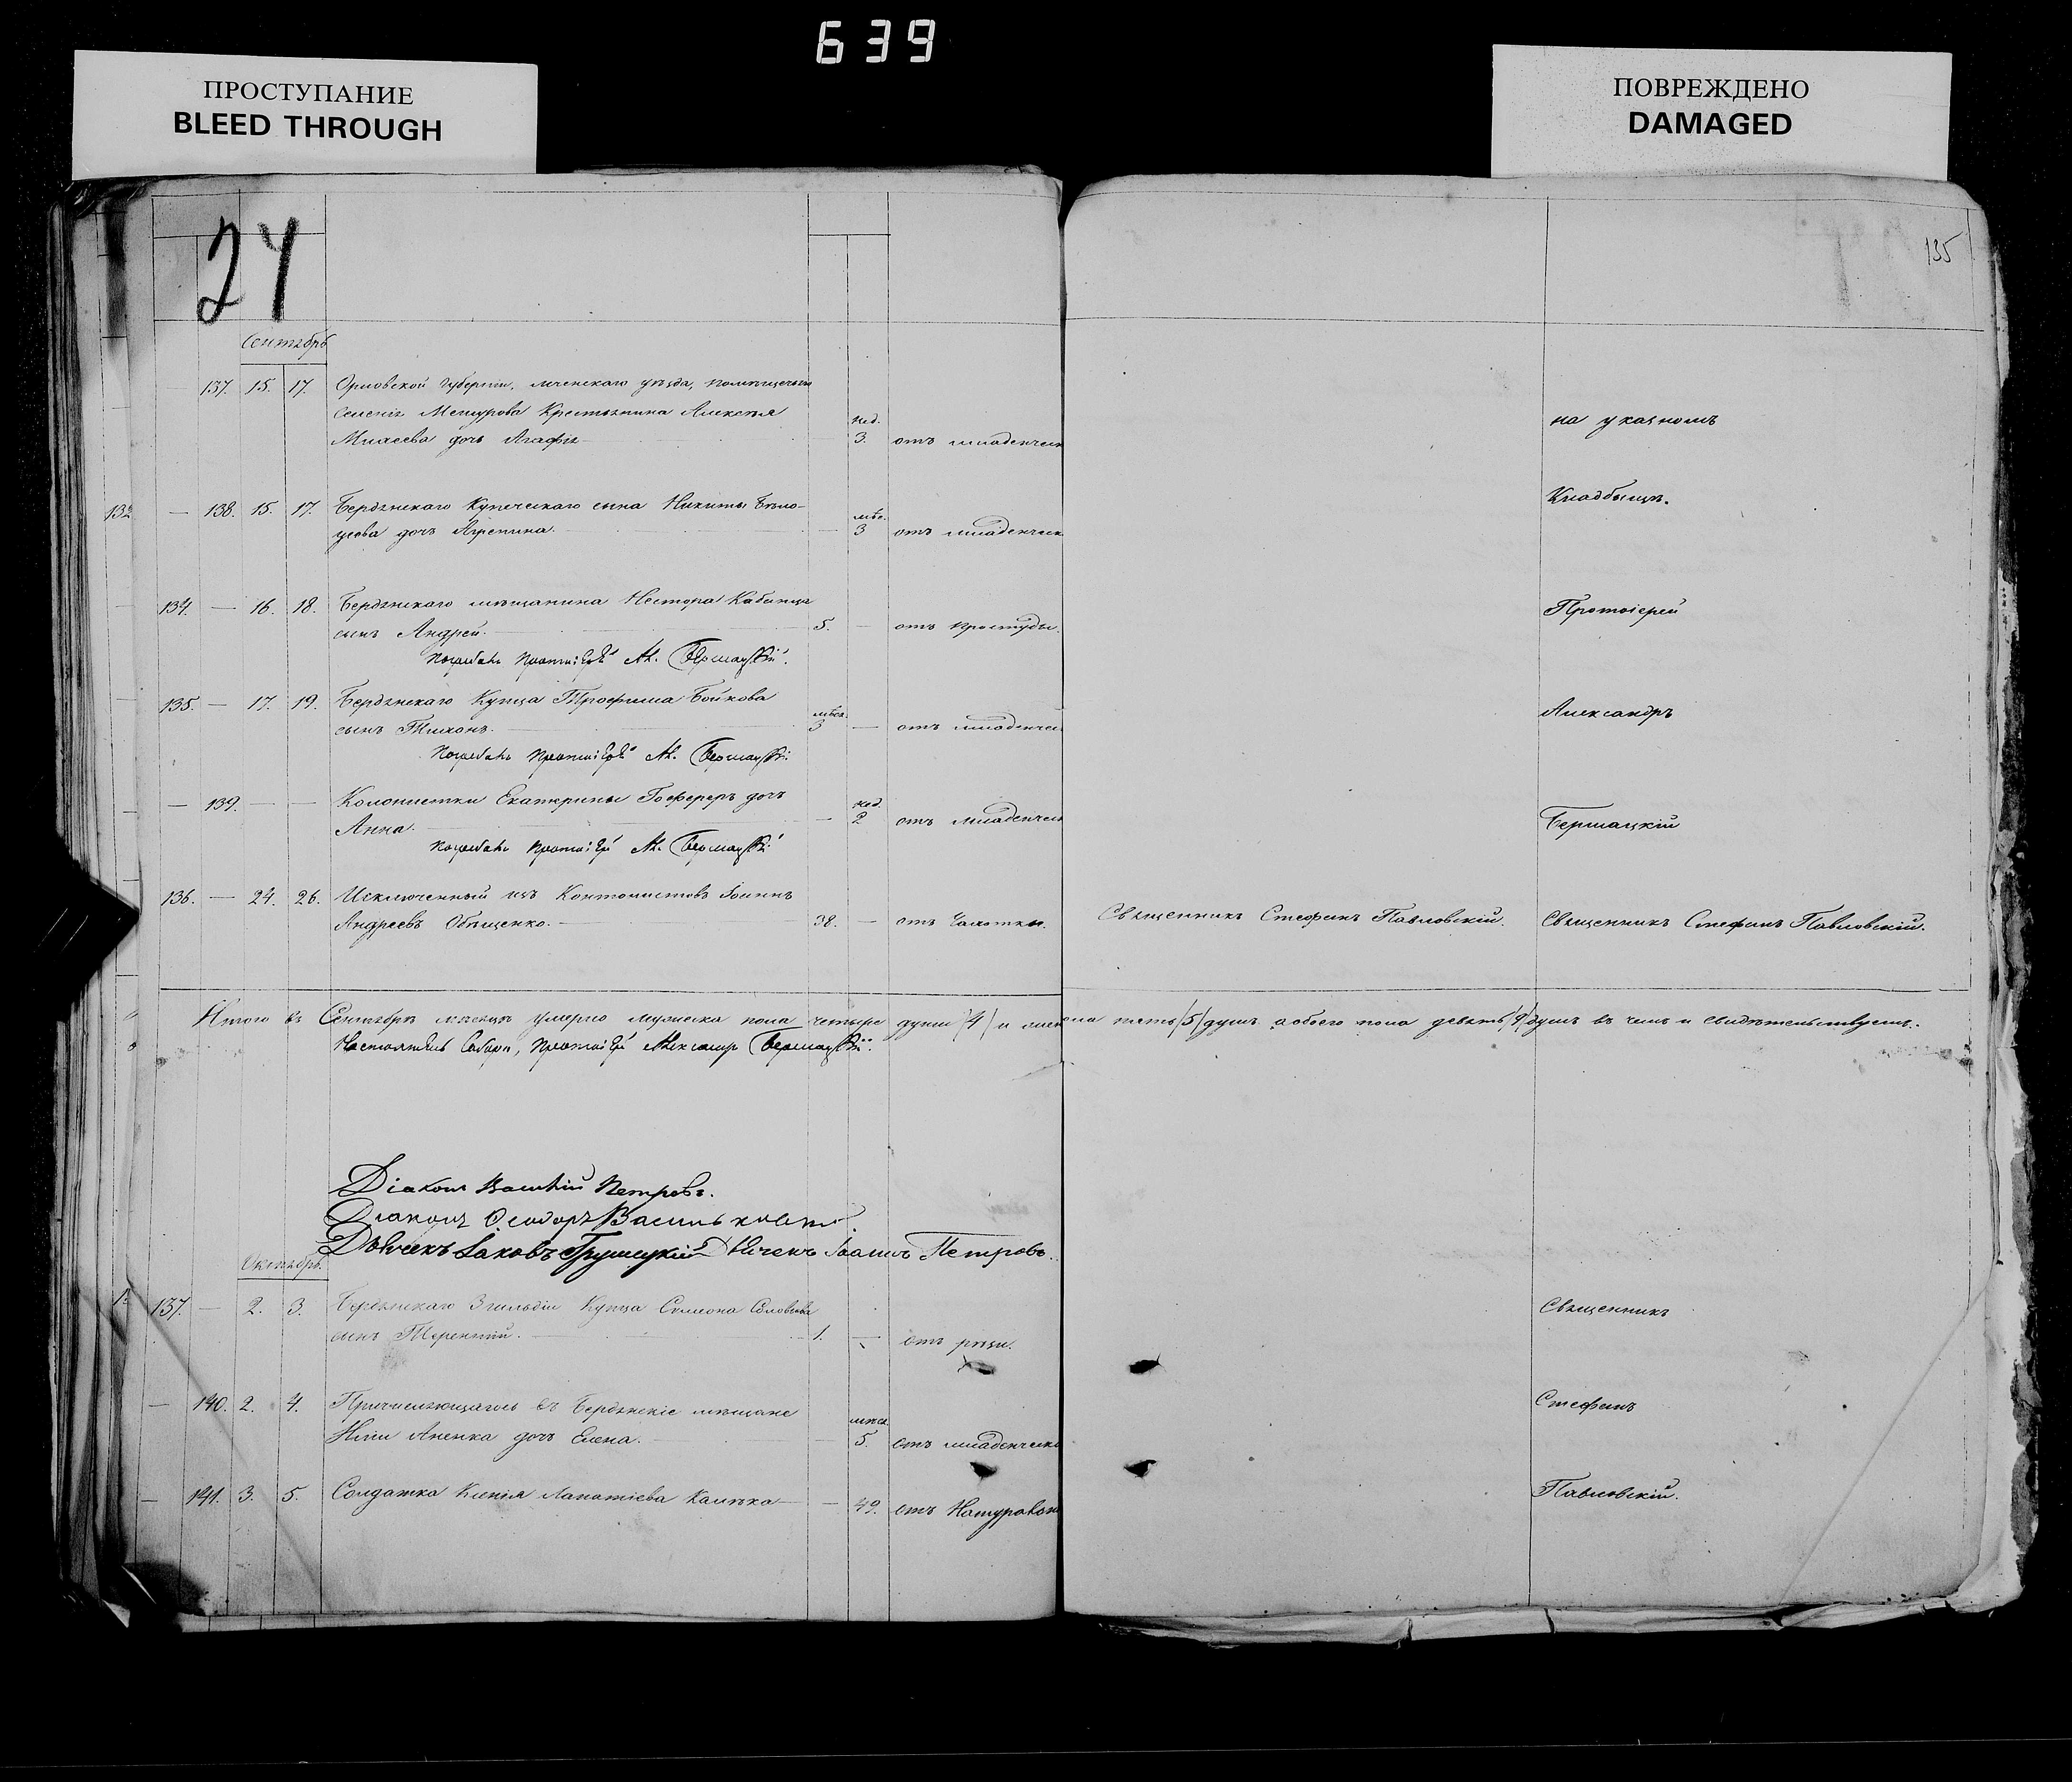 639
ПРОСТУПАНИЕ
BLEED THROUGH
ПОВРЕЖДЕНО
DAMAGED
24
135
Сентябрь
137. 15. 17. Орловской губернiи, мченскаго уѣзда, помѣщичьяго
селенiя Крестьянина Алексѣя
Михеева дочь Агафiя
нед.
3. отъ младенческ
на указномъ
132 — 138. 15. 17. Бердянскаго Купеческаго сына Никиты Бѣло-
усова дочь Агрепина.
мѣс.
3 отъ младенческ
Кладбищѣ.
134. — 16. 18. Бердянскаго мѣщанина Нестора Кабанца
сынъ Андрей. 5. — отъ простуды.
Протоiерей
Погребалъ Протоiерей Ал. Бершацкiй.
135. — 17. 19. Бердянскаго Купца Трофима Бойкова
сынъ Тихонъ.
мѣсц.
3 — отъ младенчес
Александръ
Погребалъ Протоiерей Ал. Бершацкiй
— 139. — — Колонистки Екатерины дочь
Анна. —
нед.
2 отъ младенческ
Бершацкiй
Погребалъ Протоiерей Ал. Бершацкiй
136. — 24. 26. Исключенный изъ Кантонистовъ Iоаннъ
Андреевъ Обѣщенко. 38. — отъ Чахотки.
Священникъ Стефанъ Павловскiй. Священникъ Стефанъ Павловскiй.
Итого въ Сентябрѣ мѣсяцѣ умерло мужеска пола четыре души /4/ и женс
ола пять /5/ душъ, а обоего пола девять /9/ душъ въ чемъ и свидѣтельствуемъ.
Настоятель Собора, Протоiерей Александръ Бершацкiй.
Дiаконъ Василiй Петровъ.
Дiаконъ Ѳеодоръ
Дьячекъ Iаковъ Грушецкiй Дьячекъ Iоаннъ Петровъ.
Октябрь
137. — 2. 3. Бердянскаго 3 гильдiи Купца Симеона Соловьева
сынъ Терентiй. 1. — отъ рѣзи.
Священникъ
— 140. 2. 4. Причисляющагося въ Бердянскiе мѣщане
Илiи дочь Елена. —
мѣсц.
5. отъ младенческ
Стефанъ
— 141. 3. 5. Солдатка Ксенiя Калѣка — 49. отъ Натуральн
Павловскiй.